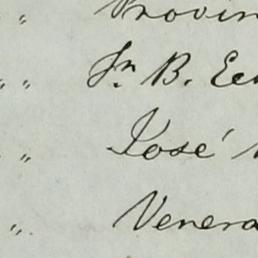 " Provin
" " Fr. B. Ec
" José
" Venera